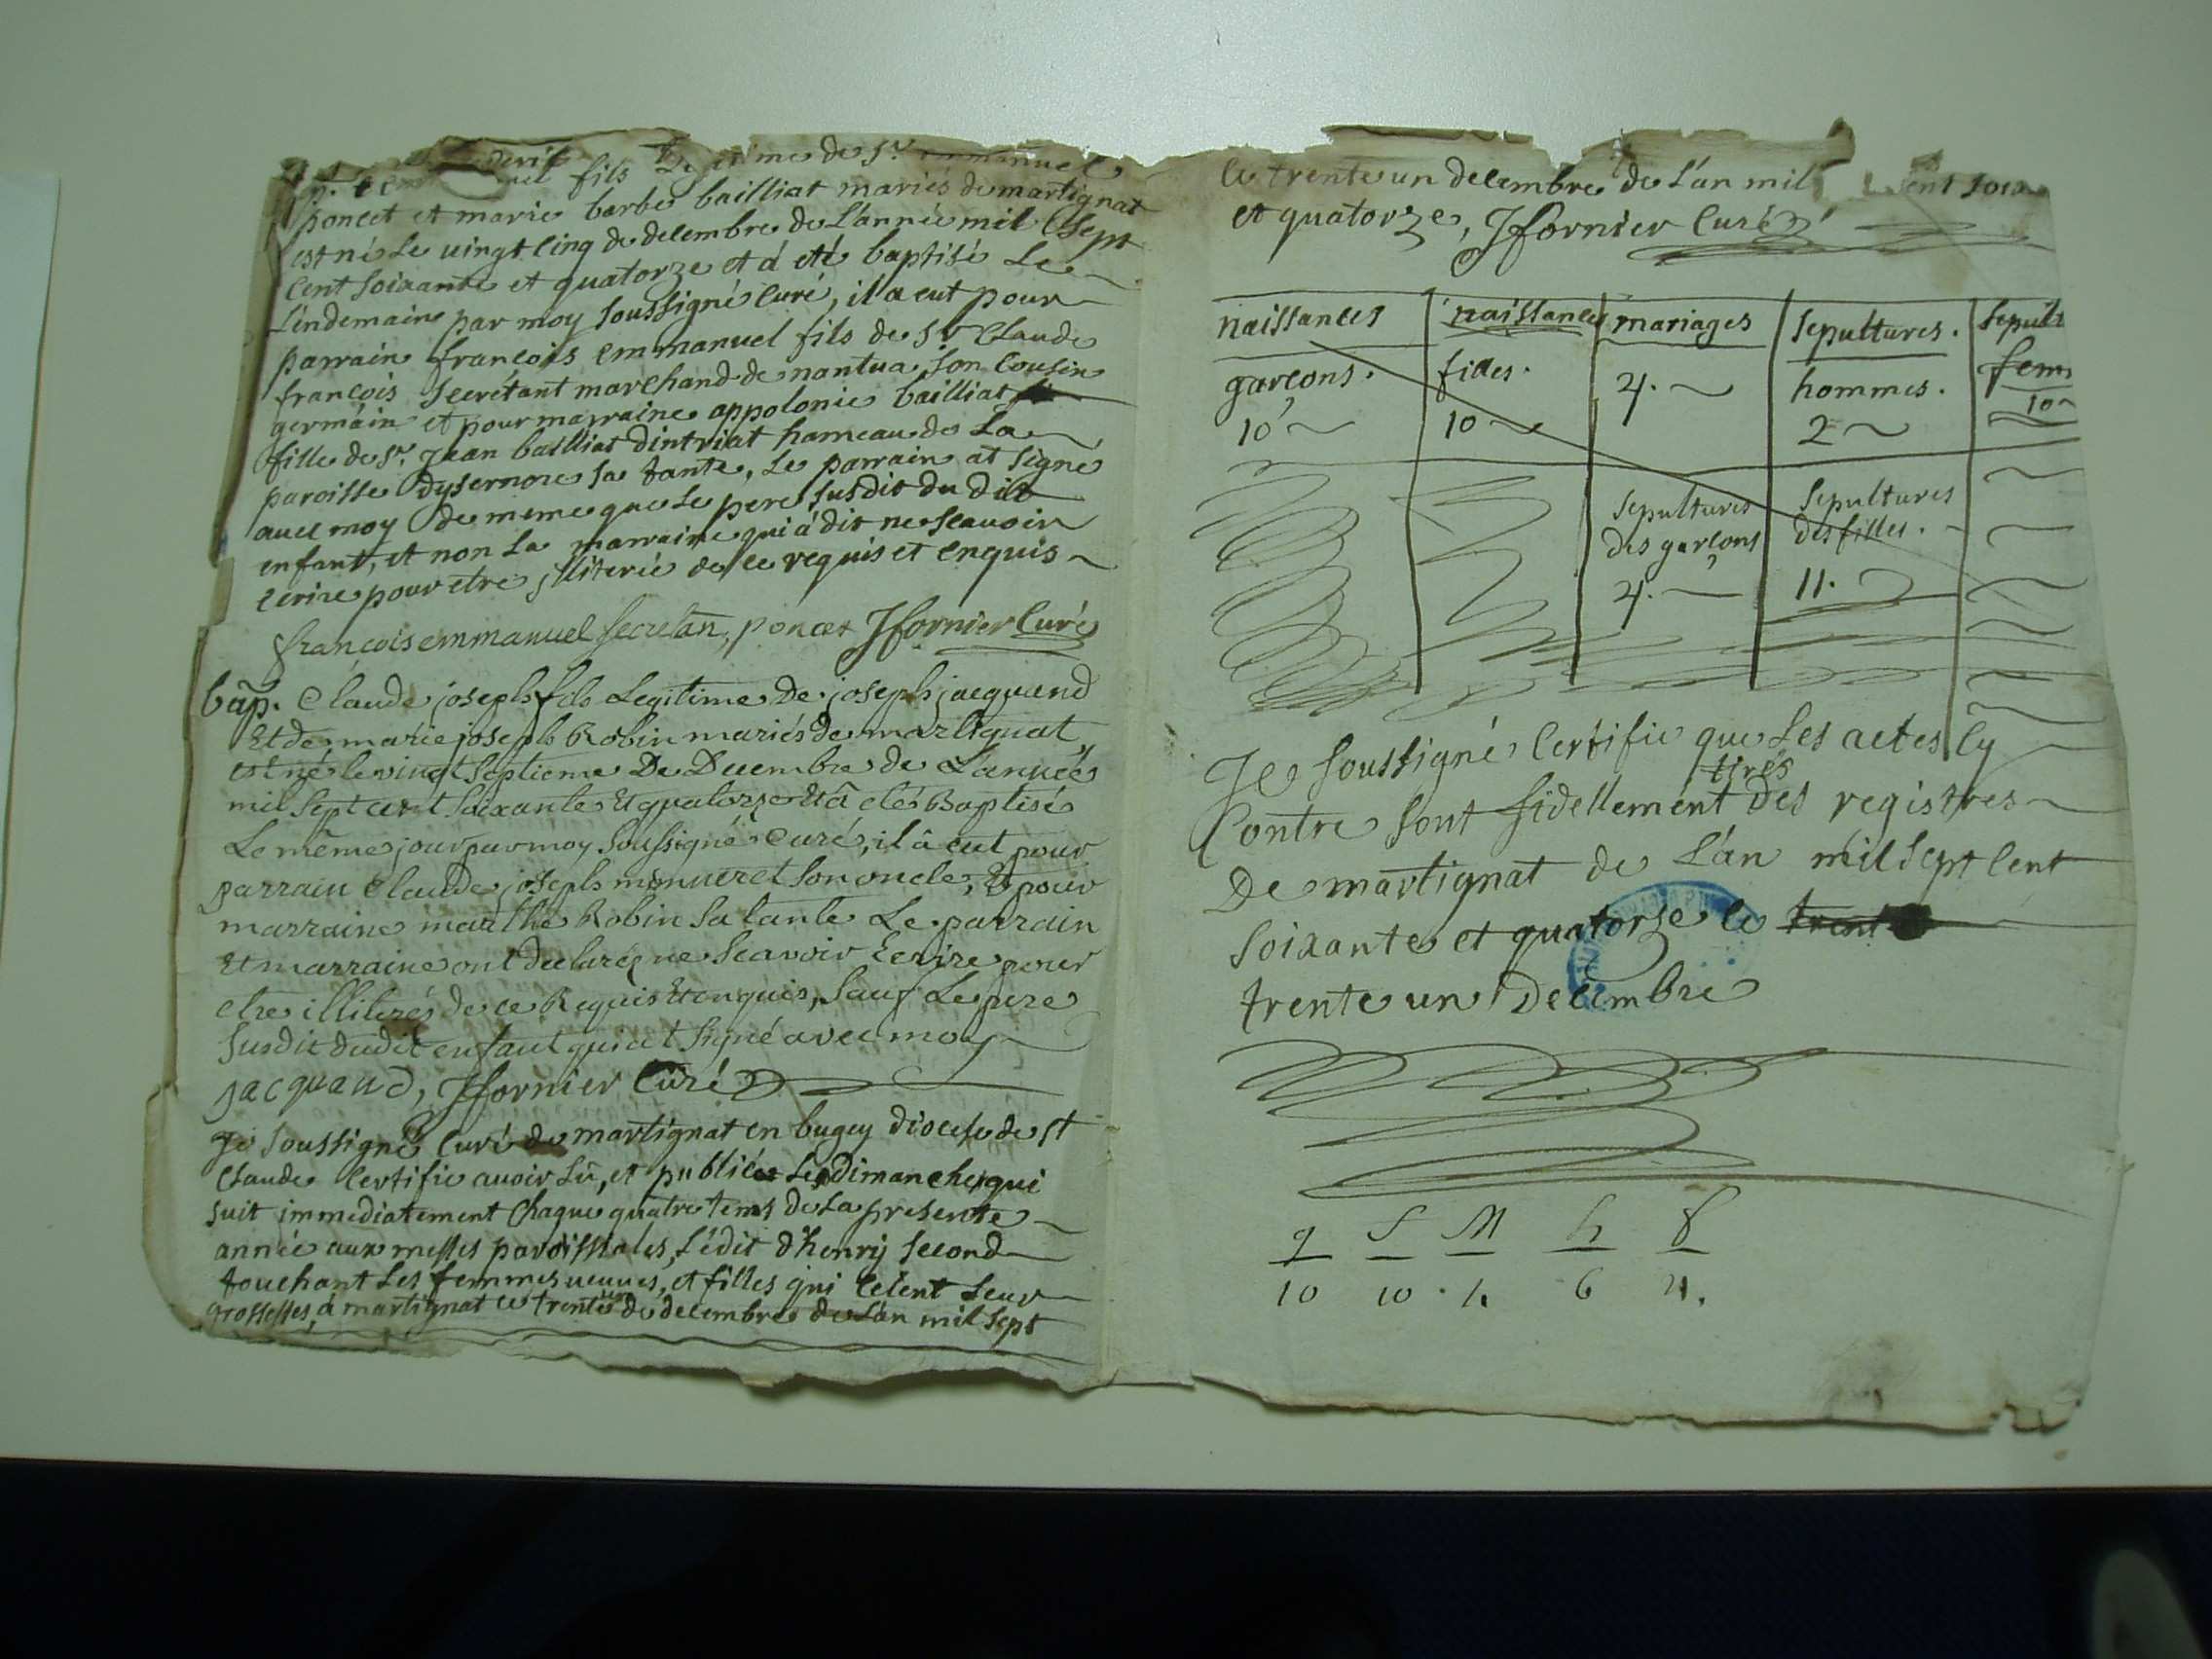 fils Legitime de Sr. emmanuel
poncet et marie barbe bailliat mariés de martignat
est né Le uingt cinq de decembre de L'année mil sept
cent soixante et quatorze et á eté baptisé Le
Lendemain par moy soussigné curé, il a eut pour
parrain françois emmanuel fils de Sr. Claude
françois Secrétant marchand de nantua son cousin
germain et pour marraine appolonie bailliat
fille de Sr. Jean bailliat dintriat hameau de La
paroisse dysernore sa tante, Le parrain at signé
auec moy de meme que Le pere susdit du dit
enfant, et non La marraine qui á dit ne scauoir
ecrire pour etre illiterée de ce requis et enquis
françois emmanuel secretan, poncet Jfornier Curé
bap. Claude joseph fils Legitime De joseph jacquand
Et de marie joseph Robin mariés de martignat
est né le vingt septieme De Decembre de L'année
mil sept cent soixante Et quatorze Et â eté Baptisé
Le même jour par moy soussigné Curé, il â eut pour
parrain Claude joseph monneret son oncle, Et pour
marraine marthe Robin sa tante Le parrain
Et marraine ont declarés ne scavoir Ecrire pour
etre illiterés de ce Requis Et enquis, sauf Le pere
susdit dudit enfant qui at signé avec moy
jacquand, Jfornier Curé
Je soussigné Curé de martignat en bugey diocese de st
Claude Certifie auoir Lû, et publiée Les Dimanches qui
suit immediatement Chaque quatre tems de La presente
année aux messes paroissiales, L'édit d'henry second
touchant Les femmes ueuues, et filles qui Celent Leur
grossesses, á martignat ce trente un de decembre de L'an mil sept
ce trente un decembre de L'an mil
et quatorze, Jfornier Curé
naissances naissances mariages sepultures. sepult
garçons. filles. 4. hommes. fem
10 10 2 10
sepultures sepultures
des garçons des filles.
4. 11.
Je soussigné Certifie que Les actes Cy
tirés
Contre sont fidellement des registres
De martignat de L'an mil sept Cent
soixante et quatorze ce trent
trente un Decembre
g f M h f
10 10 4. 6 21.